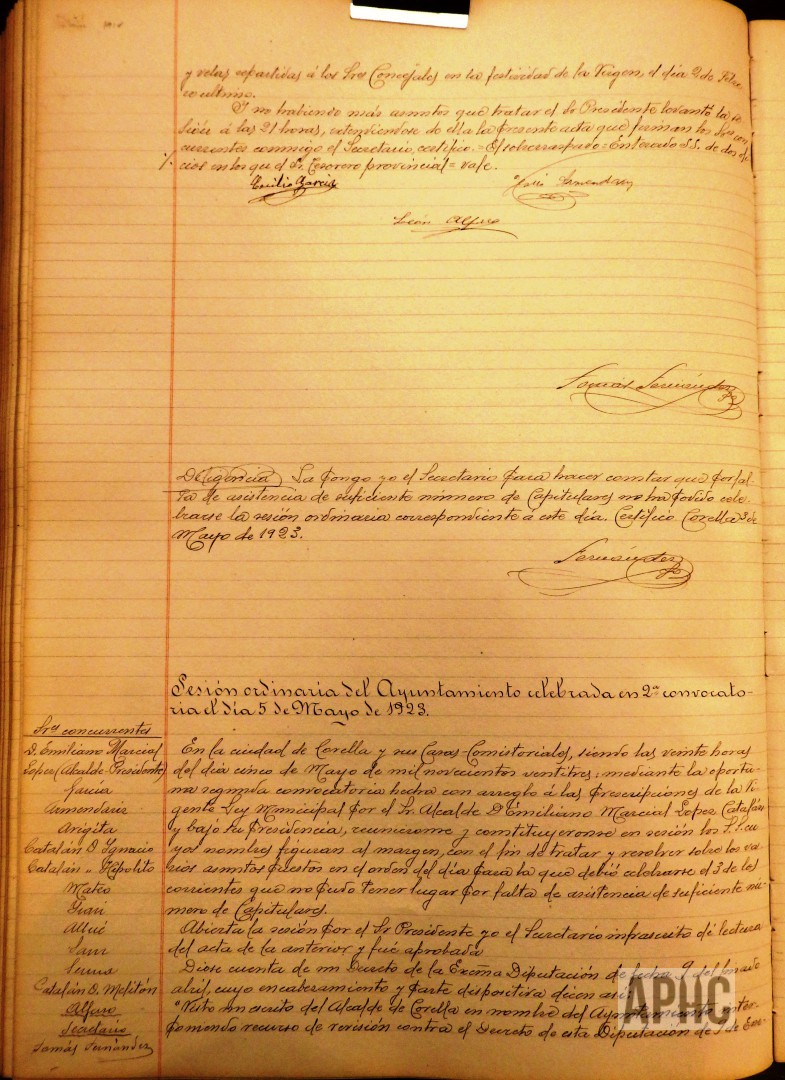 y velas repartidas á los Sres Concejales en la festividad de la Virgen, el día 2 de Febre-
ro último.
Y no habiendo más asuntos que tratar el Sr Presidente levantó la se-
sión á las 21 horas, extendiéndose de ella la presente acta que firman los Sres con-
currentes conmigo el Secretario, certifico. = El sobrerraspado = Enterado S.S. de dos ofi-
cios en los que el Sr. Tesorero provincial = vale.
Emilio Garcia
Armendariz
León Alfaro
Tomás Fernández
Diligencia La pongo yo el Secretario para hacer constar que por fal-
ta de asistencia de suficiente número de Capitulares no ha podido cele-
brarse la sesión ordinaria correspondiente á este día. Certifico Corella 3 de
Mayo de 1923.
Fernández
Sesión ordinaria del Ayuntamiento celebrada en 2ª convocato-
ria el día 5 de Mayo de 1923.
Sres concurrentes
D. Emiliano Marcial
López (Alcalde-Presidente)
Garcia
Armendariz
Arigita
Catalán D. Ignacio
Catalán " Hipólito
Mateo
Allué
Sanz
Catalán D. Melitón
Alfaro
Secretario
Tomás Fernández
En la ciudad de Corella y sus Casas-Comistoriales, siendo las veinte horas
del día cinco de Mayo de mil novecientos ventitres: mediante la oportu-
na segunda convocatoria hecha con arreglo á las prescripciones de la Vi-
gente Ley Municipal por el Sr. Alcalde D. Emiliano Marcial López Catalán
y bajo su Presidencia, reuniéronse y constituyeronse en sesión los S.S. cu-
yos nombres figuran al margen, con el fin de tratar y resolver sobre los va-
rios asuntos puestos en el orden del día para la que debió celebrarse el 3 de los
corrientes que no pudo tener lugar por falta de asistencia de suficiente nú-
mero de Capitulares.
Abierta la sesión por el Sr Presidente yo el Secretario infrascrito dí lectura
del acta de la anterior y fué aprobada
Diose cuenta de un Decreto de la Excma Diputación de fecha 9 del pasado
abril, cuyo encabezamiento y parte dispositiva dicen asi:
"Visto un escrito del Alcalde de Corella en nombre del Ayuntamiento inter-
poniendo recurso de revisión contra el Decreto de esta Diputación de de Ene-
APHC